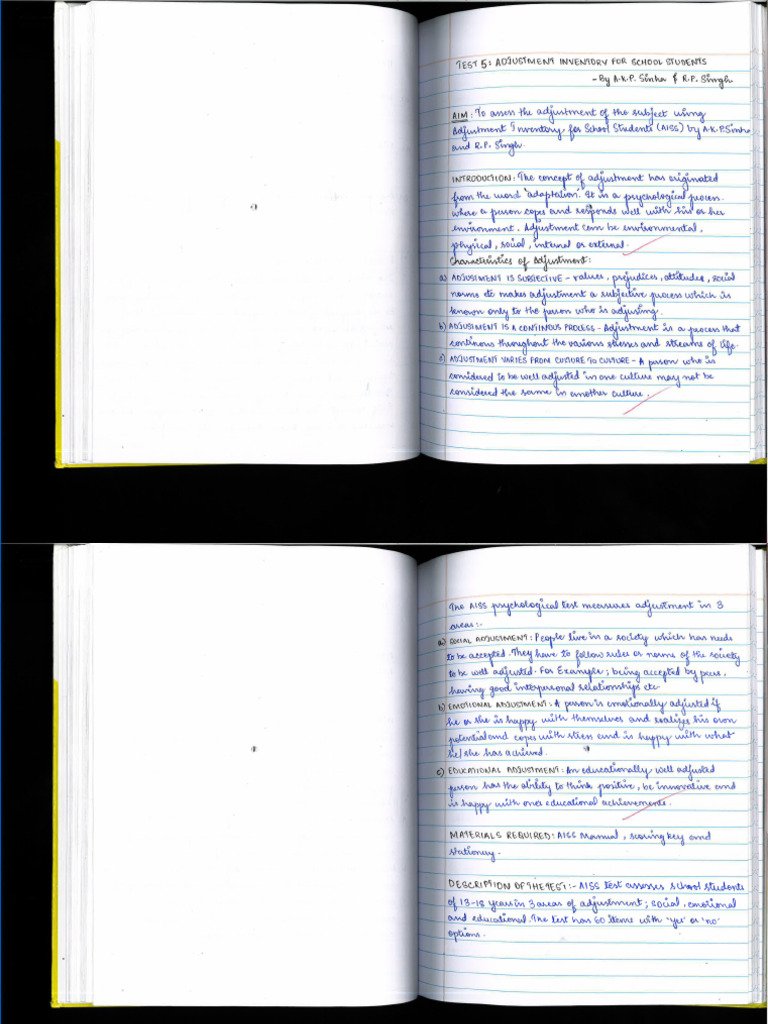 TEST 5: ADJUSTMENT INVENTORY FOR SCHOOL STUDENTS
- By A.K.P. Sinha & R.P. Singh
AIM: To assess the adjustment of the subject using
Adjustment Inventory for School Students (AISS) by A.K.P.Sinha
and R.P. Singh.
INTRODUCTION: The concept of adjustment has originated
from the word 'adaptation'. It is a psychological process
where a person copes and responds well with his or her
environment. Adjustment can be environmental,
physical, social, internal or external.
Characteristics of Adjustment:
a) ADJUSTMENT IS SUBJECTIVE - values, prejudices, attitudes, social
norms etc makes adjustment a subjective process which is
known only to the person who is adjusting.
b) ADJUSTMENT IS A CONTINOUS PROCESS - Adjustment is a process that
continous throughout the various stresses and streams of life.
c) ADJUSTMENT VARIES FROM CULTURE TO CULTURE - A person who is
considered to be well adjusted in one culture may not be
considered the same in another culture.
The AISS psychological test measures adjustment in 3
areas:-
a) SOCIAL ADJUSTMENT: People live in a society which has needs
to be accepted. They have to follow rules or norms of the society
to be well adjusted. For Example; being accepted by peers,
having good interpersonal relationships etc.
b) EMOTIONAL ADJUSTMENT: A person is emotionally adjusted if
he or she is happy with themselves and realizes his own
potential and copes with stress and is happy with what
he/she has achieved.
c) EDUCATIONAL ADJUSTMENT: An educationally well adjusted
person has the ability to think positive, be innovative and
is happy with one's educational achievements.
MATERIALS REQUIRED: AISS Manual, scoring key and
stationery.
DESCRIPTION OF THE TEST:- AISS test assesses school students
of 13-18 years in 3 areas of adjustment; social, emotional
and educational. The test has 60 items with 'yes' or 'no'
options.